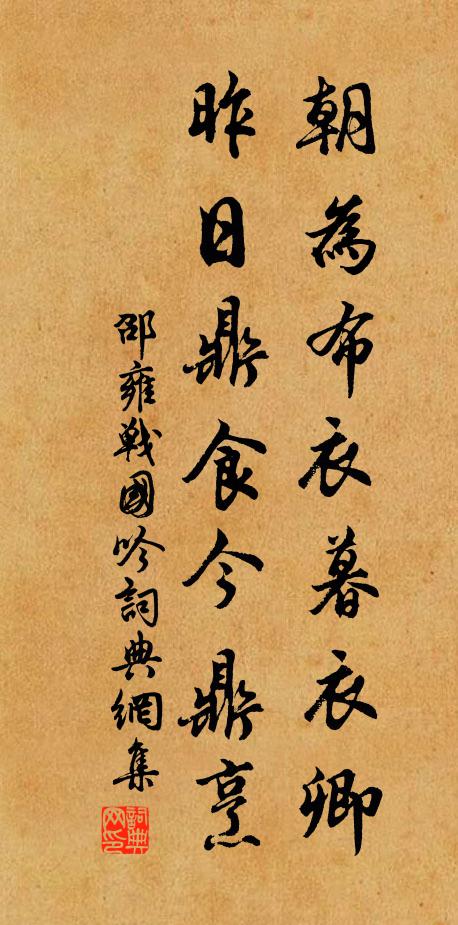 朝為布衣暮衣卿
昨日鼎食今鼎烹
邵雍戰國吟詞典網集
詞典网印